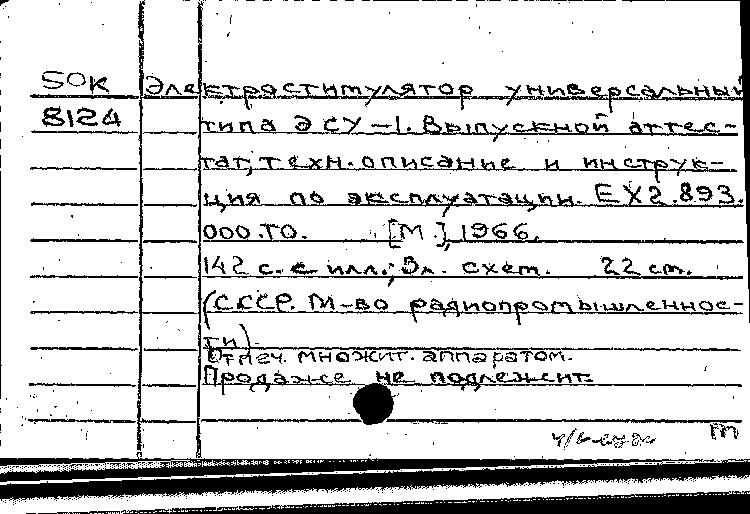 50К Электростимулятор универсальный
8124 типа ЭСУ-1. Выпускной аттес-
тат, техн. описание и инструк-
ция по эксплуатации. ЕХ2.893.
000.ТО. [М.], 1966.
142 с. с илл.; 3 л. схем. 22 см.
(СССР. М-во радиопромышленнос-
ти).
Отпеч. множит. аппаратом.
Продаже не подлежит.
m